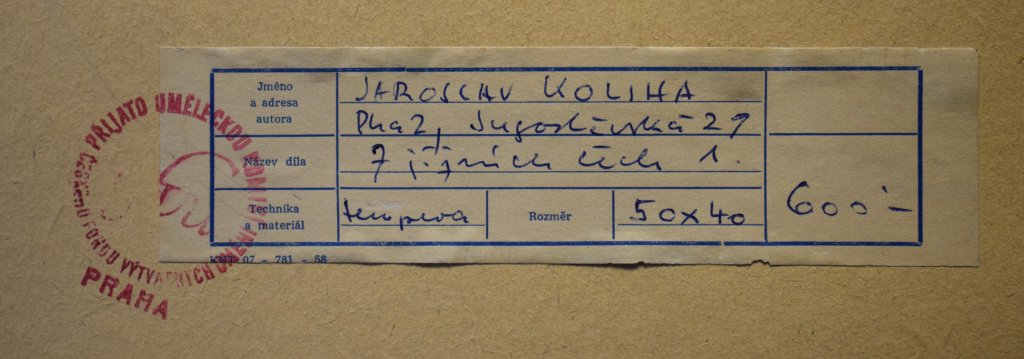 Jméno
a adresa
autora
JAROSLAV KOLIHA
Pha 2, Jugoslávská 29
Název díla
Z jižních Čech 1.
Technika
a materiál
tempera
Rozměr
50x40
600,-
KNT 07 - 781 - 58
PŘIJATO UMĚLECKOU KOMISÍ
ČESKÉHO FONDU VÝTVARNÝCH UMĚNÍ
PRAHA